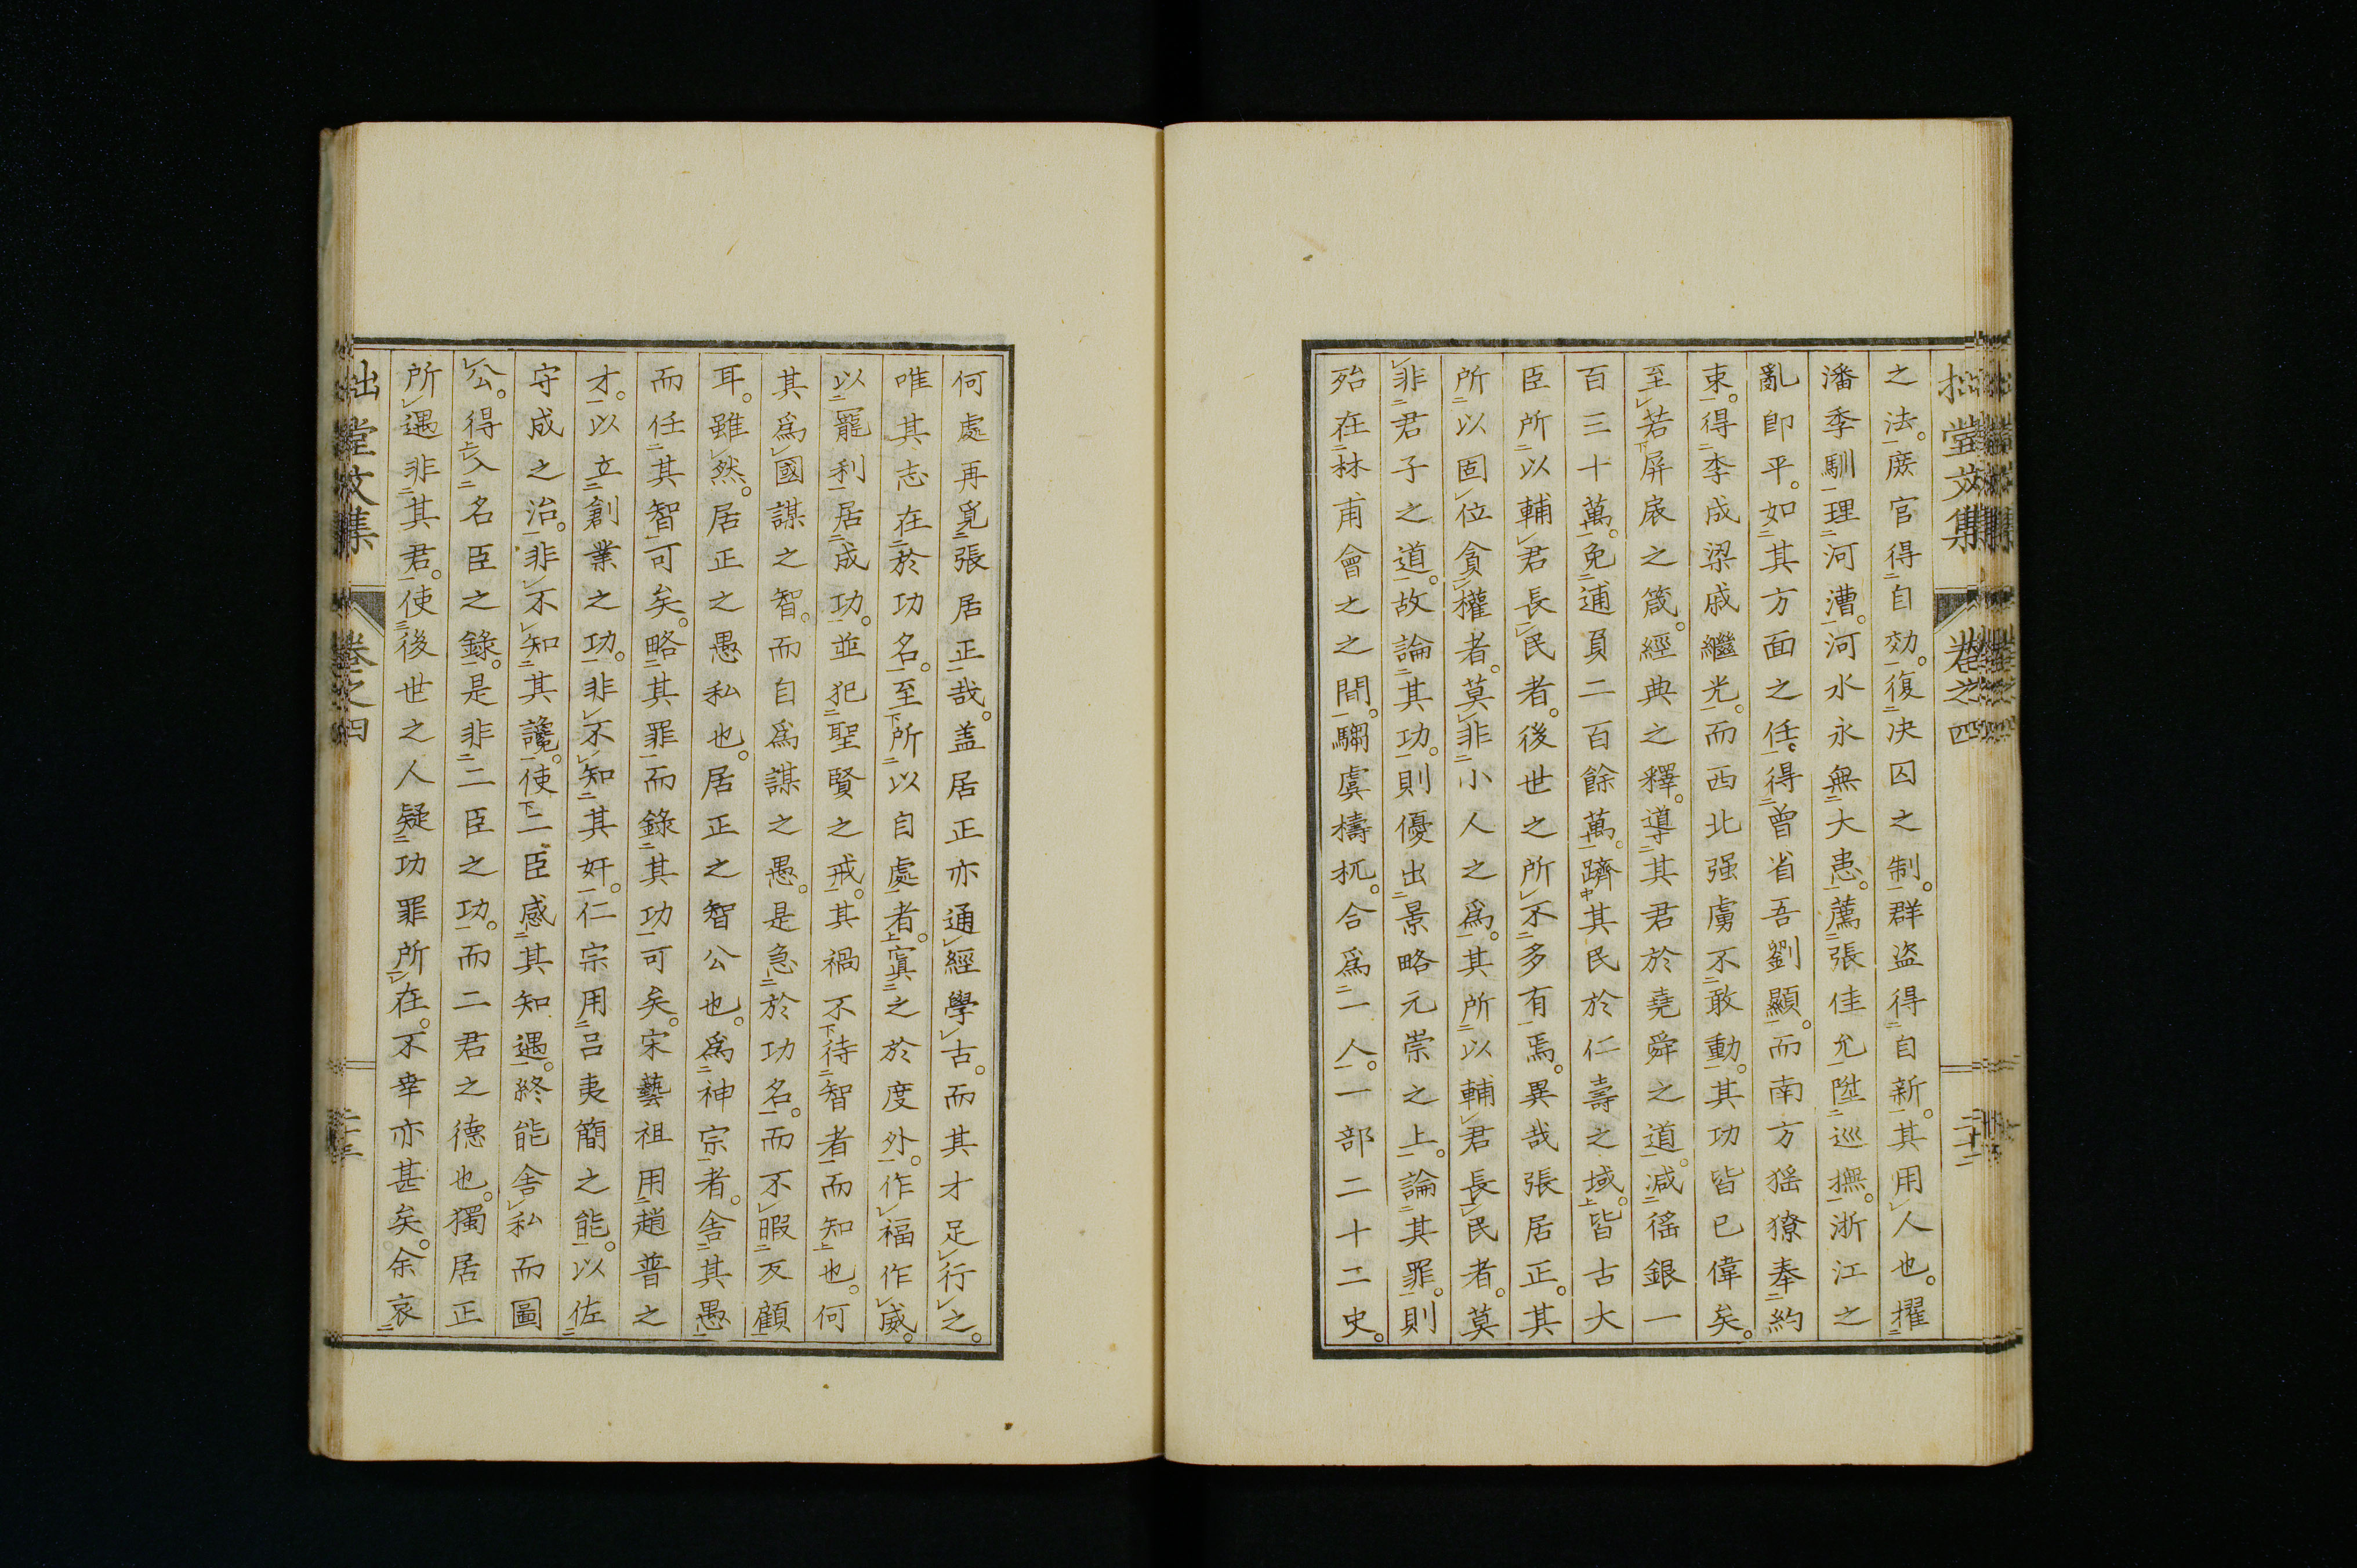 拙堂文集 卷之四 二十二
之法。廢官得自効。復决囚之制。群盗得自新。其用人也。擢
潘季馴理河漕。河水永無大患。薦張佳允陞巡撫。浙江之
亂卽平。如其方面之任。得曾省吾劉顯。而南方猺獠奉約
束。得李成梁戚繼光。而西北强虜不敢動。其功皆已偉矣。
至若屏扆之箴。經典之釋。導其君於堯舜之道。减徭銀一
百三十萬。免逋負二百餘萬。躋其民於仁壽之域。皆古大
臣所以輔君長民者。後世之所不多有焉。異哉張居正。其
所以固位貪權者。莫非小人之爲。其所以輔君長民者。莫
非君子之道。故論其功。則優出景略元崇之上。論其罪。則
殆在林甫會之之間。騶虞檮杌。合爲一人。一部二十二史。
何處再覓張居正哉。盖居正亦通經學古。而其才足行之。
唯其志在於功名。至所以自處者。寘之於度外。作福作威。
以寵利居成功。並犯聖賢之戒。其禍不待智者而知也。何
其爲國謀之智。而自爲謀之愚。是急於功名。而不暇反顧
耳。雖然。居正之愚私也。居正之智公也。爲神宗者。舍其愚
而任其智可矣。略其罪而錄其功可矣。宋藝祖用趙普之
才。以立創業之功。非不知其奸。仁宗用呂夷簡之能。以佐
守成之治。非不知其讒。使二臣感其知遇。終能舍私而圖
公。得入名臣之錄。是非二臣之功。而二君之德也。獨居正
所遇非其君。使後世之人疑功罪所在。不幸亦甚矣。余哀
拙堂文集 卷之四 二十三